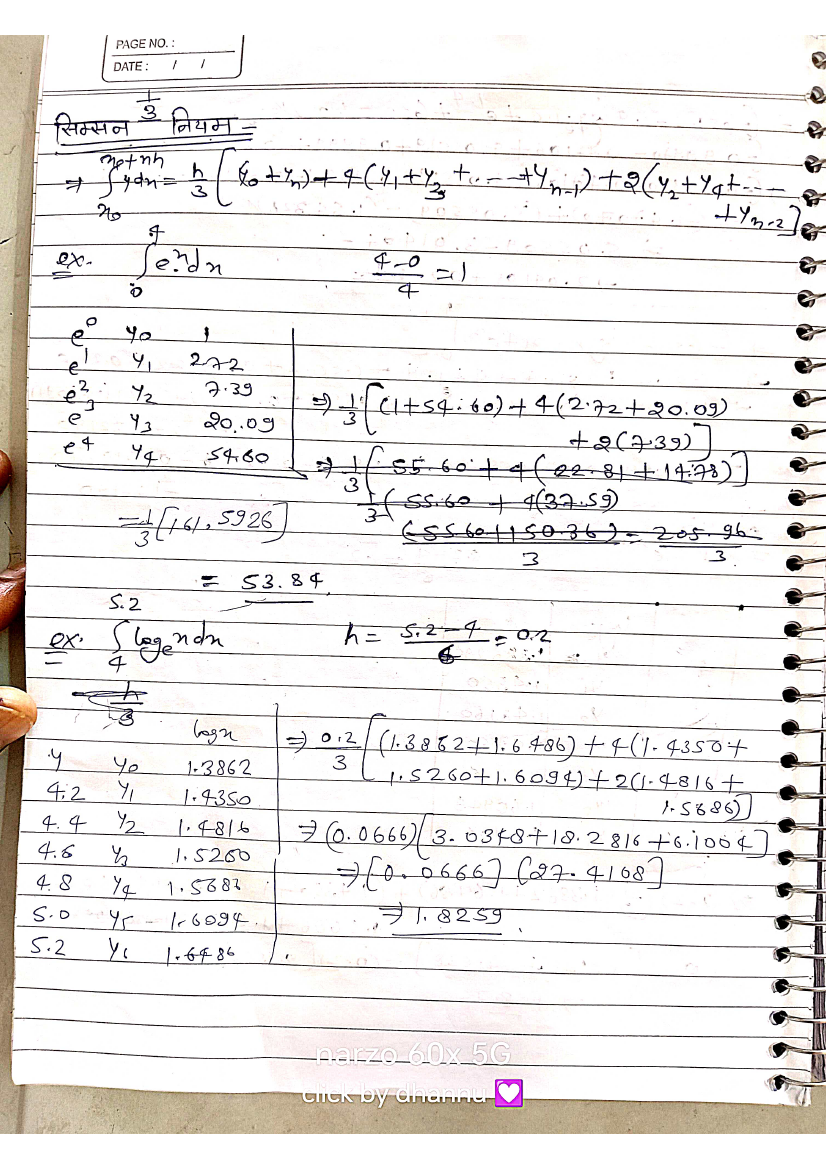 PAGE NO. :
DATE : / /
सिम्सन 1/3 नियम -
⇒ ∫_{x₀}^{x₀+nh} ydx = h/3 [(y₀+yₙ)+4(y₁+y₃+...-+yₙ₋₁)+2(y₂+y₄+---
+yₙ₋₂]
ex. ∫₀⁴ eˣdx (4-0)/4 = 1
e⁰ y₀ 1
e¹ y₁ 2.72
e² y₂ 7.39
e³ y₃ 20.09
e⁴ y₄ 54.60
⇒ 1/3 [(1+54.60)+4(2.72+20.09)
+2(7.39)]
⇒ 1/3 [55.60+4(22.81+14.78)]
1/3 (55.60 + 4(37.59)
(55.60+150.36)/3 = 205.96/3
= 1/3 [161.5926]
= 53.84
ex. ∫₄^{5.2} logₑxdx h = (5.2-4)/6 = 0.2
h/3
logx
4 y₀ 1.3862
4.2 y₁ 1.4350
4.4 y₂ 1.4816
4.6 y₃ 1.5260
4.8 y₄ 1.5686
5.0 y₅ - 1.6094
5.2 y₆ 1.6486
⇒ 0.2/3 [(1.3862+1.6486)+4(1.4350+
1.5260+1.6094)+2(1.4816+
1.5686)]
⇒ (0.0666)[3.0348+18.2816+6.1004]
⇒ [0.0666] (27.4168]
⇒ 1.8259
narzo 60x 5G
click by dhannu